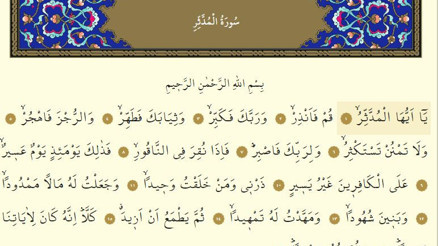 سُورَةُ الْمُدَّثِّرِ
بِسْمِ اللهِ الرَّحْمٰنِ الرَّحٖيمِ
يَٓا اَيُّهَا الْمُدَّثِّرُۙ ﴿١﴾ قُمْ فَاَنْذِرْۙ ﴿٢﴾ وَرَبَّكَ فَكَبِّرْۙ ﴿٣﴾ وَثِيَابَكَ فَطَهِّرْۙ ﴿٤﴾ وَالرُّجْزَ فَاهْجُرْۙ ﴿٥﴾
وَلَا تَمْنُنْ تَسْتَكْثِرُۙ ﴿٦﴾ وَلِرَبِّكَ فَاصْبِرْۜ ﴿٧﴾ فَاِذَا نُقِرَ فِى النَّاقُورِۙ ﴿٨﴾ فَذٰلِكَ يَوْمَئِذٍ يَوْمٌ عَسٖيرٌۙ
﴿٩﴾ عَلَى الْكَافِرٖينَ غَيْرُ يَسٖيرٍ ﴿١٠﴾ ذَرْنٖى وَمَنْ خَلَقْتُ وَحٖيدًاۙ ﴿١١﴾ وَجَعَلْتُ لَهُ مَالًا مَمْدُودًاۙ
﴿١٢﴾ وَبَنٖينَ شُهُودًاۙ ﴿١٣﴾ وَمَهَّدْتُ لَهُ تَمْهٖيدًاۙ ﴿١٤﴾ ثُمَّ يَطْمَعُ اَنْ اَزٖيدَۗ ﴿١٥﴾ كَلَّاۜ اِنَّهُ كَانَ لِاٰيَاتِنَا